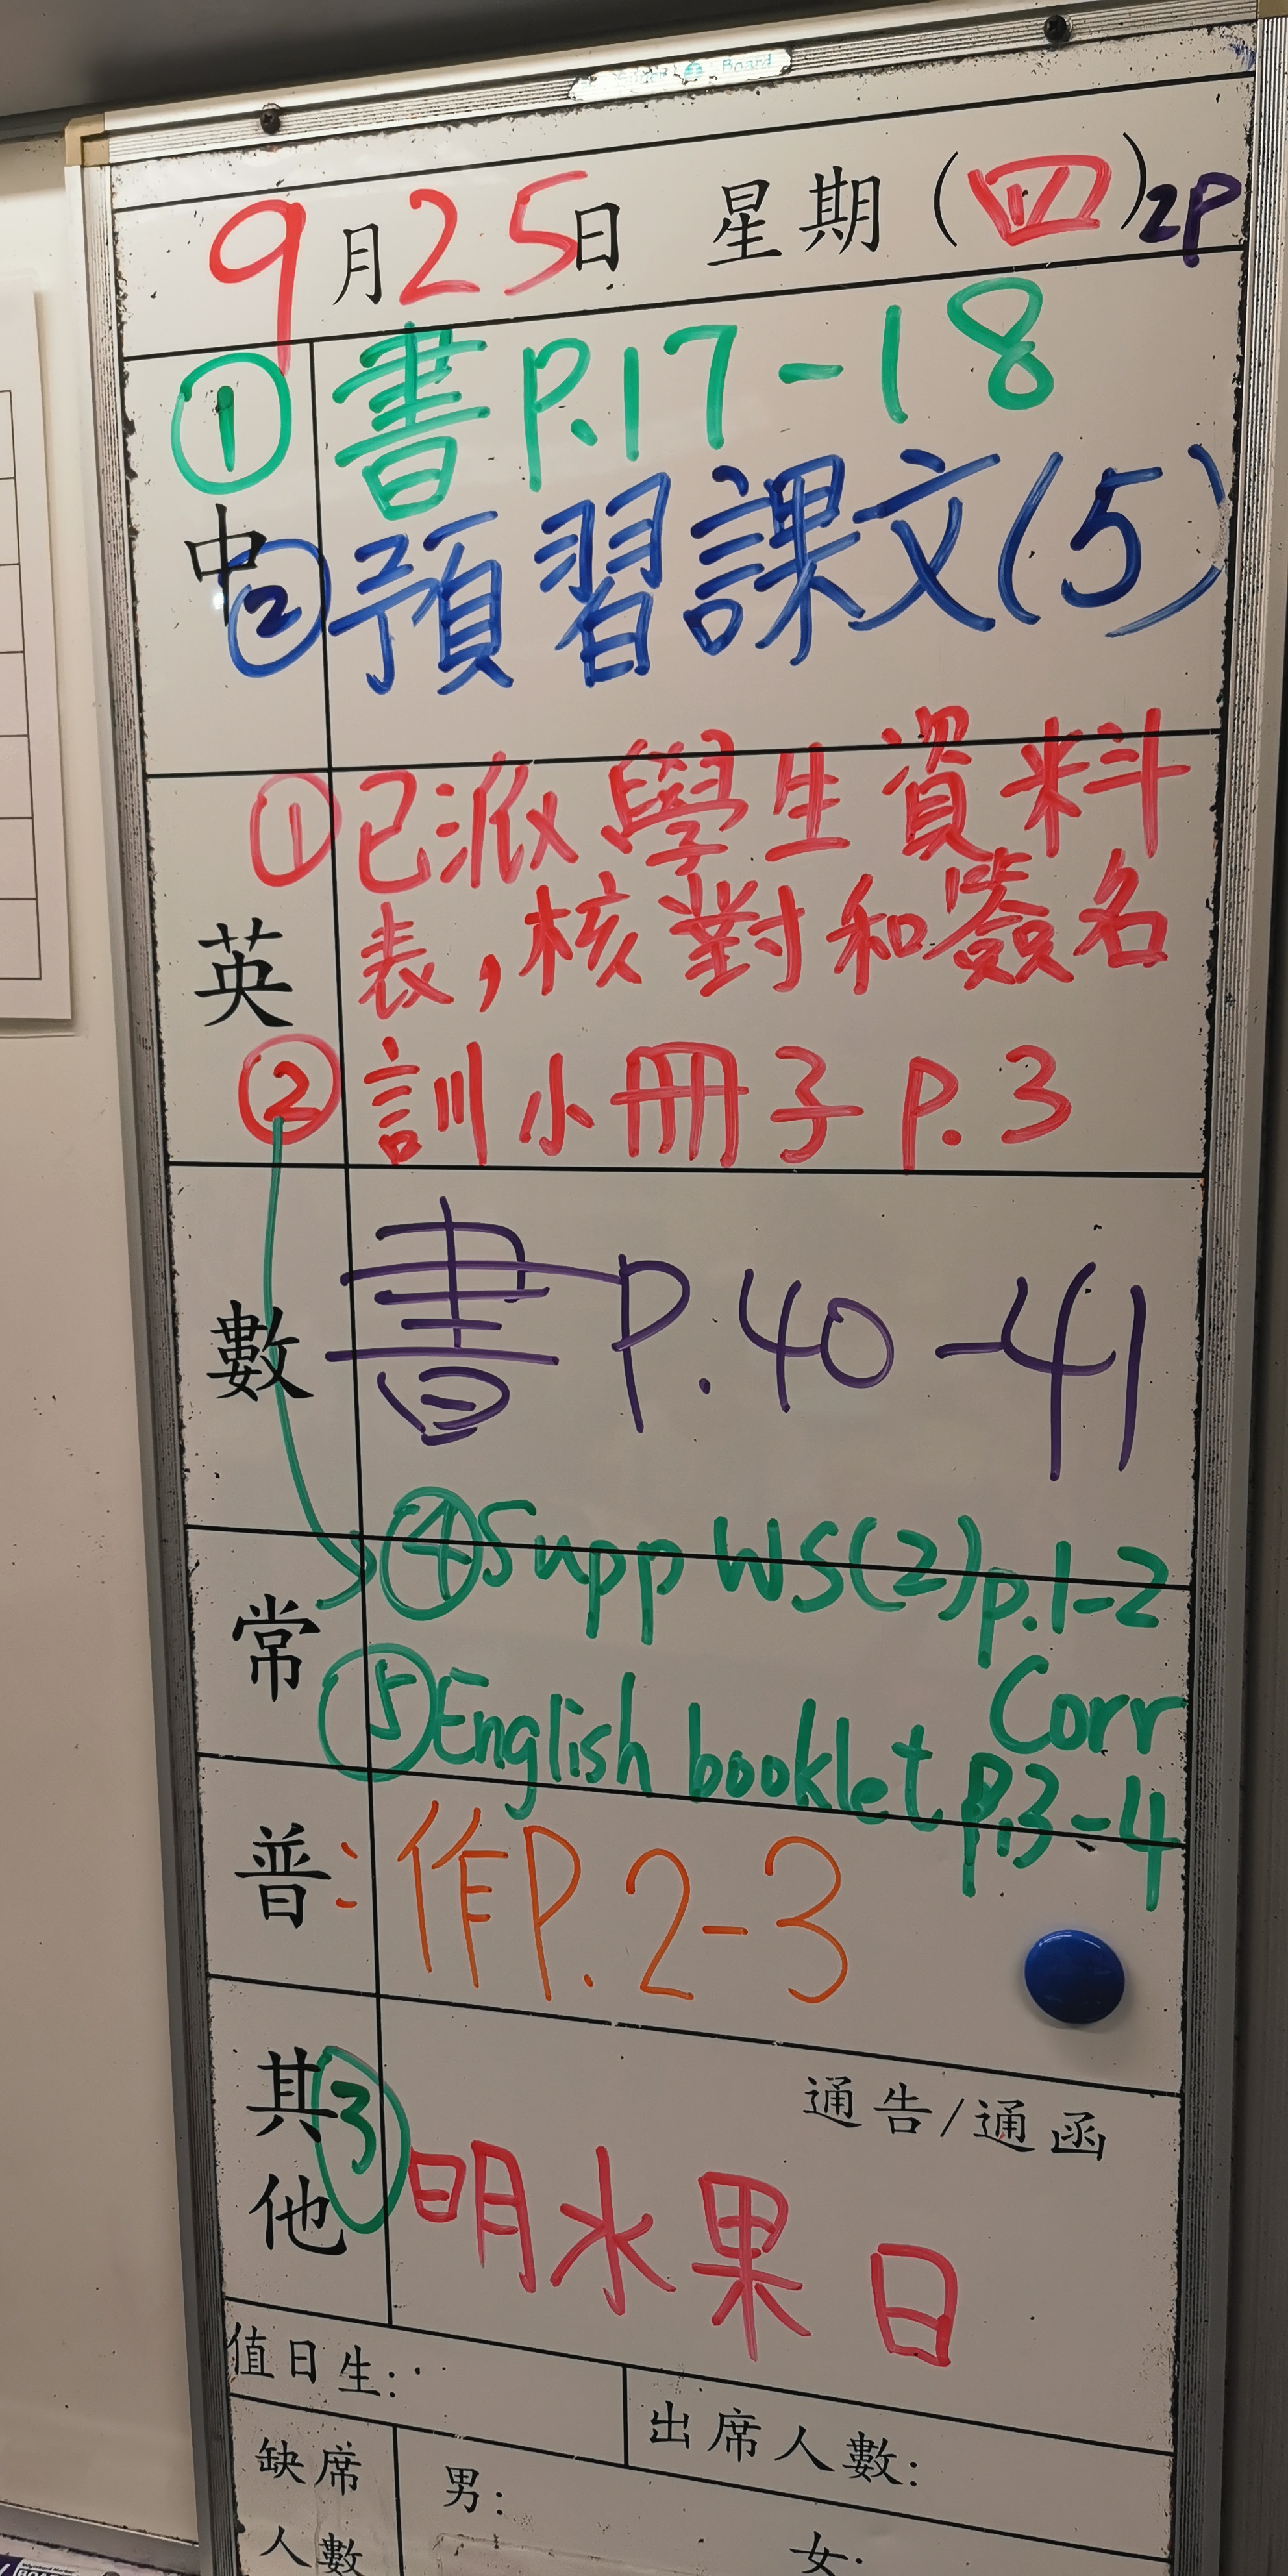 9月25日 星期(四)2P
① 書P.17-18
中
② 預習課文(5)
① 已派學生資料
表,核對和簽名
英
② 訓小冊子 P.3
數 書P.40-41
④Supp WS(2)p.1-2
Corr
常
⑤English booklet p.3-4
普: 作P.2-3
通告/通函
其他
③ 明水果日
值日生:
出席人數:
缺席人數
男:
女: